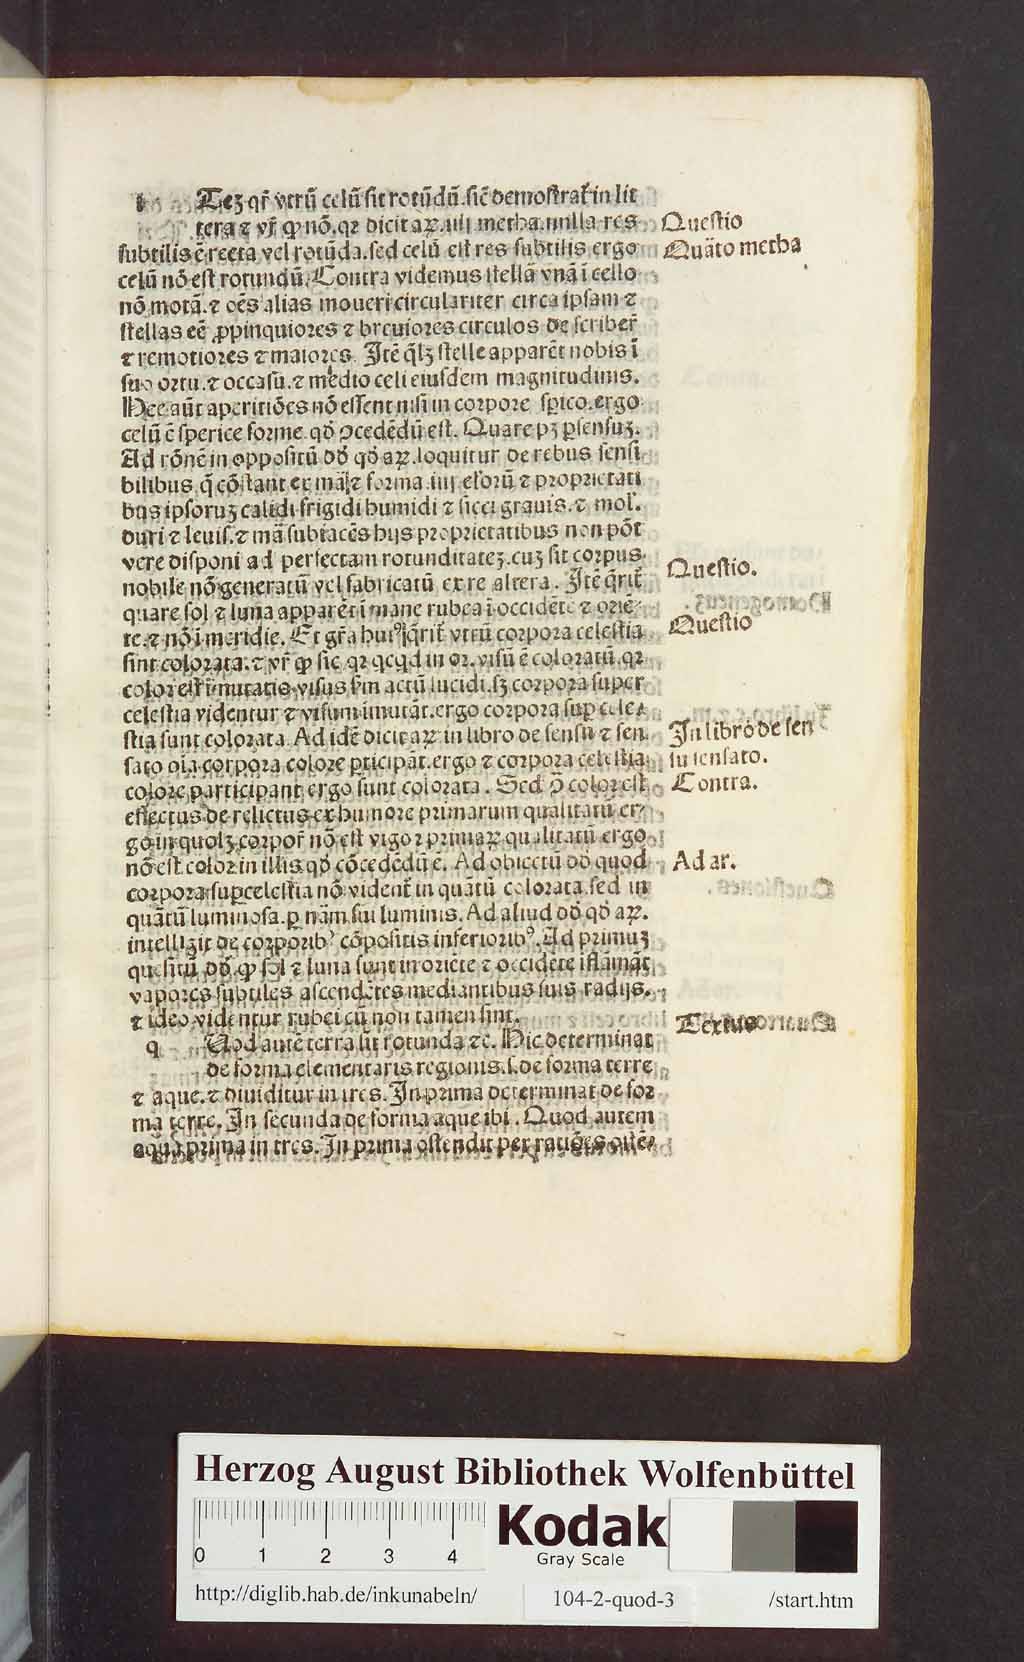 i Teꝫ qr̄ vtrū celū sit rotūdū. sic̄ demōstrat̄ in lit
tera ⁊ vr̄ ꝙ nō. qꝛ dicit aꝝ. iiij metha. nulla res
subtilis ē recta vel rotūda. sed celū est res subtilis ergo
celū nō est rotundū. Contra videmus stellā vnā ī cello
nō motā. ⁊ oēs alias moueri circulariter circa ipsam ⁊
stellas eē ꝓpinquiores ⁊ breuiores circulos de scriber̄
⁊ remotiores ⁊ maiores. Itē q̄lꝫ stelle apparēt nobis ī
suo ortu. ⁊ occasū. ⁊ medio celi eiusdem magnitudinis.
Hec aūt aperitiōes nō essent nisi in corpore sp̄ico. ergo
celū ē sperice forme. qd̄ ꝯcedēdū est. Quare pꝫ ꝑ sensuꝫ.
Ad rōnē in oppositū dd̄ qd̄ aꝝ. loquitur de rebus sensi
bilibus q̄ cōstant ex mā ⁊ forma. iiij elorū ⁊ proprietati
bus ipsoruꝫ calidi frigidi humidi ⁊ sicci grauis. ⁊ mol'.
duri ⁊ leuis. ⁊ mā subiacēs hijs proprietatibus non pōt
vere disponi ad perfectam rotunditateꝫ. cuꝫ sit corpus
nobile nō generatū vel fabricatū ex re altera. Itē q̄rit̄
quare sol ⁊ luna apparēt ī mane rubea ī occidēte ⁊ oriē-
te. ⁊ nō ī meridie. Et gr̄a huiꝰ q̄rit̄ vtrū corpora celestia
sint colorata. ⁊ vr̄ ꝙ sic qꝛ qcqd in or. visū ē coloratū. qꝛ
color est īmutatiꝰ visus fm actū lucidi. sꝫ corpora super
celestia videntur ⁊ visum īmutāt. ergo corpora suꝑ cele-
stia sunt colorata. Ad idē dicit aꝝ in libro de sensu ⁊ sen
sato oīa corpora colore ꝑticipāt. ergo ⁊ corpora celestia
colore participant ergo sunt colorata. Sed ꝯ̄ color est
effectus de relictus ex humore primarum qualitatū er-
go in quolꝫ corpor̄ nō est vigor primaꝝ qualitatū ergo
nō est color in illis qd̄ cōcedēdū ē. Ad obiectū dd̄ quod
corpora suꝑcelestia nō vident̄ in quātū colorata. sed in
quātū luminosa. ꝑ nām sui luminis. Ad aliud dd̄ qd̄ aꝝ.
intelligit de corporibꝰ cōpositis inferioribꝰ. Ad primuꝫ
quesitū dd̄. ꝙ sol ⁊ luna sunt in oriēte ⁊ occidēte īflāmāt
vapores subtiles ascendētes mediantibus suis radijs.
⁊ ideo videntur rubei cū non tamen sint.
q Uod autē terra sit rotunda ⁊c. Hic determinat
de forma elementaris regionis. s. de forma terre
⁊ aque. ⁊ diuiditur in tres. In prima determinat de for
ma terre. In secunda de forma aque ibi. Quod autem
aqua prima in tres. In prima ostendit per ratiōes qūē-
Questio
Quāto metha
Questio.
Questio
In libro de sen
su sensato.
Contra.
Ad ar.
Textus
Herzog August Bibliothek Wolfenbüttel
0 1 2 3 4
Kodak
Gray Scale
http://diglib.hab.de/inkunabeln/ 104-2-quod-3 /start.htm